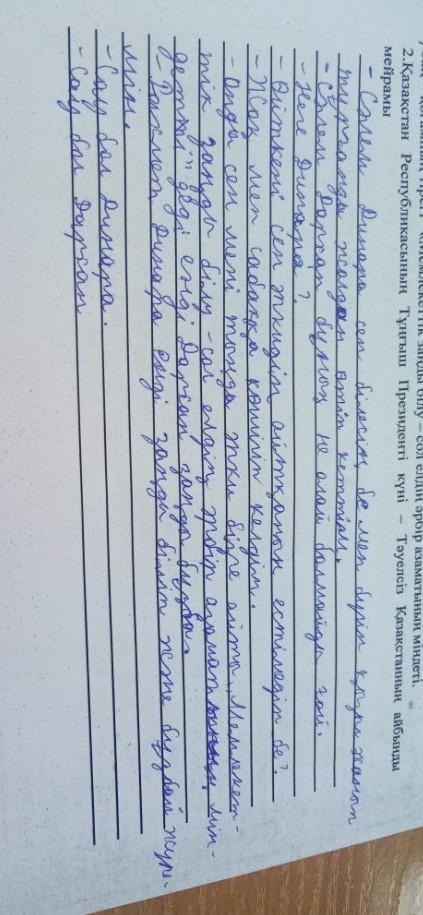 заңды білу – сол елдің әрбір азаматының міндеті.
2.Қазақстан Республикасының Тұңғыш Президенті күні – Тәуелсіз Қазақстанның айбынды
мейрамы
- Сәлем Динара сен білесің бе мен бүгін қызыл жанып
тұрғанда жолдан өтіп кеттім.
- Сәлем Дархан бұның не олай болмайды ғой.
- Неге Динара?
- Өйткені сен айтқанын естімедің бе?
- Жоқ мен сабаққа кешігіп келдім.
- Онда сен мені тыңда айтты „Мемлекет-
тік заңды білу - сол елдің әрбір азаматының мін-
деті" деді енді Дархан заңды бұзба.
- Рахмет Динара енді заңды біліп және бұзбай жүре-
мін.
- Сау бол Динара.
- Сау бол Дархан